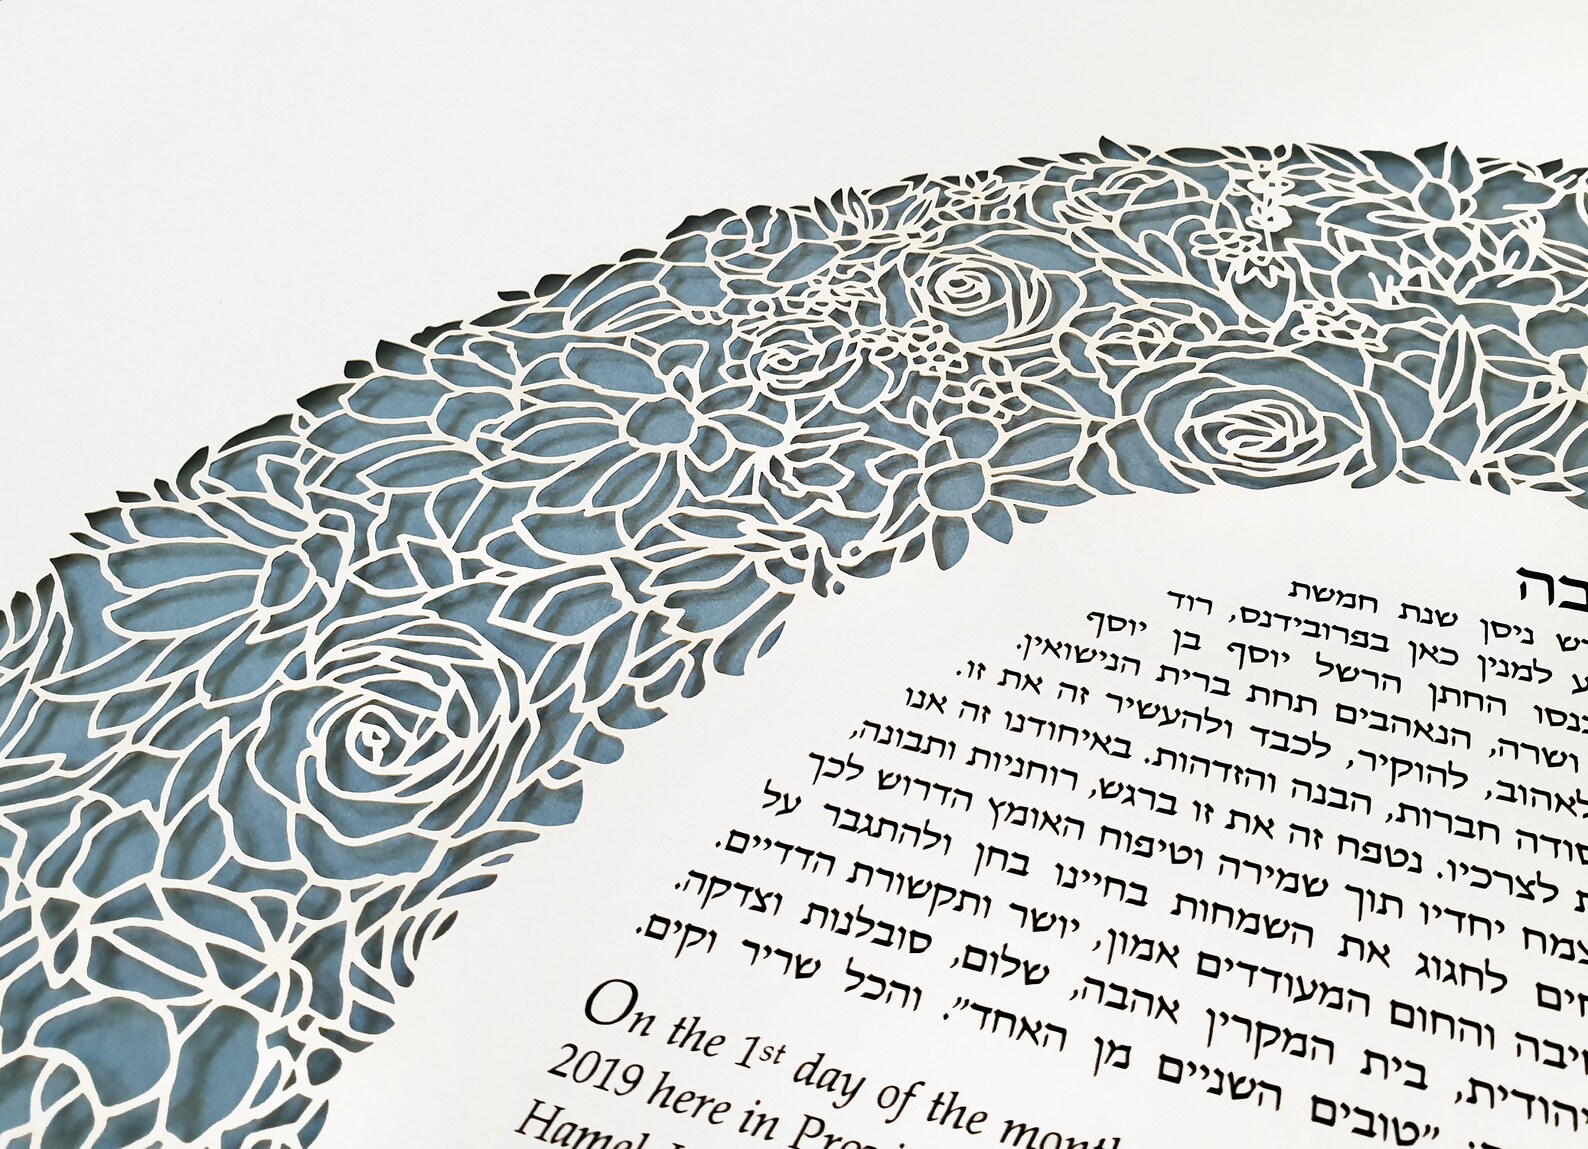 בה
ניסן שנת חמשת
למנין כאן בפרובידנס, רוד
החתן הרשל יוסף בן יוסף
ושרה, הנאהבים תחת ברית הנישואין.
לאהוב, להוקיר, לכבד ולהעשיר זה את זו.
חברות, הבנה והזדהות. באיחודנו זה אנו
לצרכיו. נטפח זה את זו ברגש, רוחניות ותבונה,
יחדיו תוך שמירה וטיפוח האומץ הדרוש לכך
לחגוג את השמחות בחיינו בחן ולהתגבר על
והחום המעודדים אמון, יושר ותקשורת הדדיים.
בית המקרין אהבה, שלום, סובלנות וצדקה.
"טובים השניים מן האחד". והכל שריר וקים.
On the 1st day of the month
2019 here in